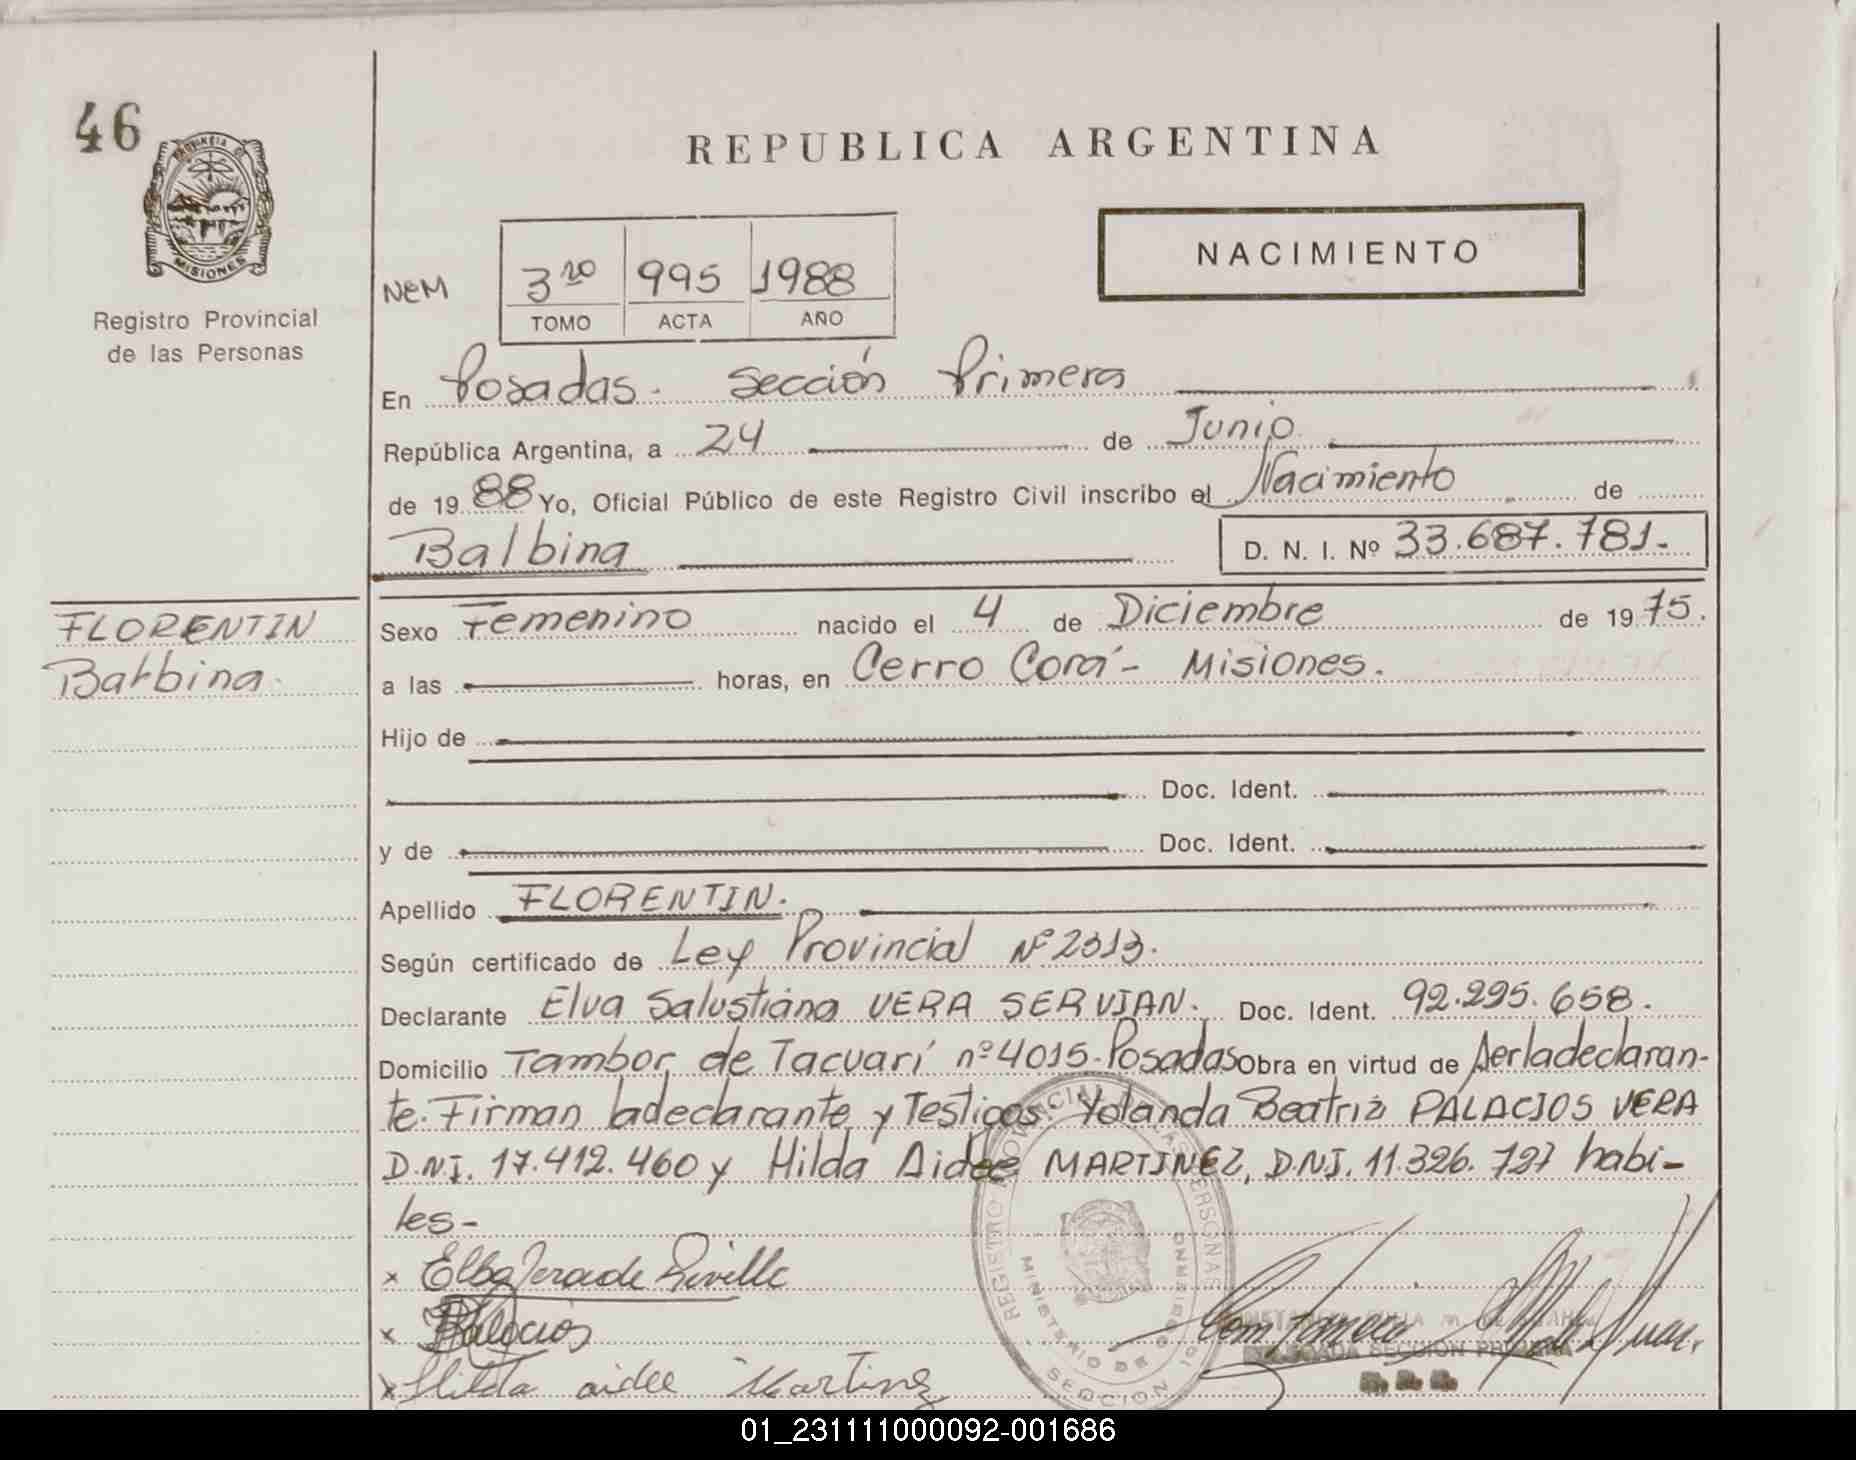 46
PROVINCIA DE
MISIONES
Registro Provincial
de las Personas
REPUBLICA ARGENTINA
NACIMIENTO
NeM
3ro 995 1988
TOMO ACTA AÑO
En Posadas. Sección Primera
República Argentina, a 24 de Junio
de 1988 Yo, Oficial Público de este Registro Civil inscribo el Nacimiento de
Balbina D. N. I. Nº 33.687.781.-
FLORENTIN
Balbina.
Sexo Femenino nacido el 4 de Diciembre de 1975.
a las horas, en Cerro Corá - Misiones.
Hijo de
Doc. Ident.
y de Doc. Ident.
Apellido FLORENTIN.
Según certificado de Ley Provincial Nº 2313.
Declarante Elva Salustiana VERA SERVIAN. Doc. Ident. 92.295.658.
Domicilio Tambor de Tacuarí nº 4015-Posadas Obra en virtud de ser la declaran-
te. Firman la declarante y Testigos Yolanda Beatriz PALACIOS VERA
D.N.I. 17.412.460 y Hilda Aidee MARTINEZ, D.N.I. 11.326.727 habi-
les-
x Elba Vera de
x Palacios
x Hilda aidee Martinez
REGISTRO PROVINCIAL DE LAS PERSONAS
MINISTERIO DE GOBIERNO
SECCION
DELEGADA SECCION PRIMERA
01_231111000092-001686